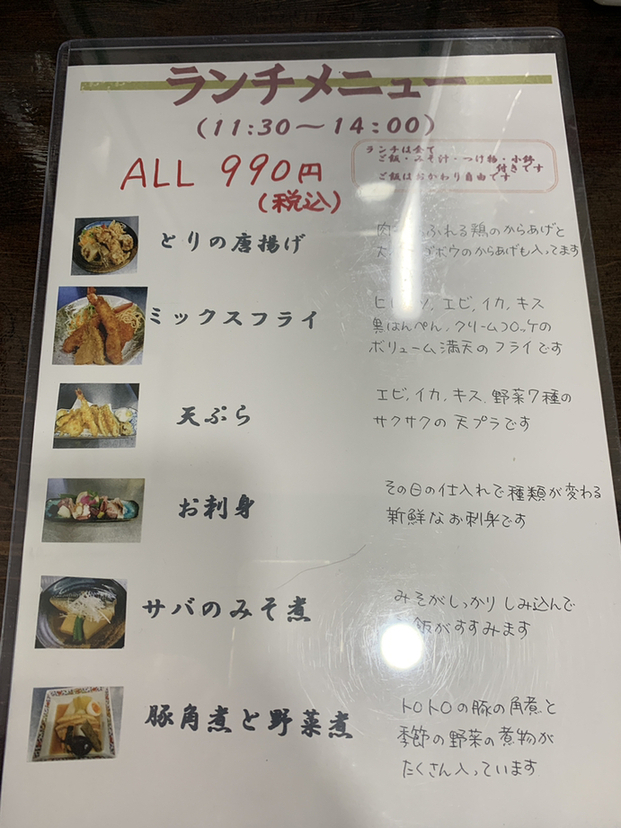 ランチメニュー
(11:30～14:00)
ALL 990円
(税込)
ランチは全て
ご飯・みそ汁・つけ物・小鉢
付きです
ご飯はおかわり自由です
とりの唐揚げ
肉 ふれる鶏のからあげと
ゴボウのからあげも入ってます
ミックスフライ
エビ, イカ, キス
黒はんぺん, クリームコロッケの
ボリューム満天のフライです
天ぷら
エビ, イカ, キス, 野菜7種の
サクサクの天プラです
お刺身
その日の仕入れで種類が変わる
新鮮なお刺身です
サバのみそ煮
みそがしっかりしみ込んで
飯がすすみます
豚角煮と野菜煮
トロトロの豚の角煮と
季節の野菜の煮物が
たくさん入っています